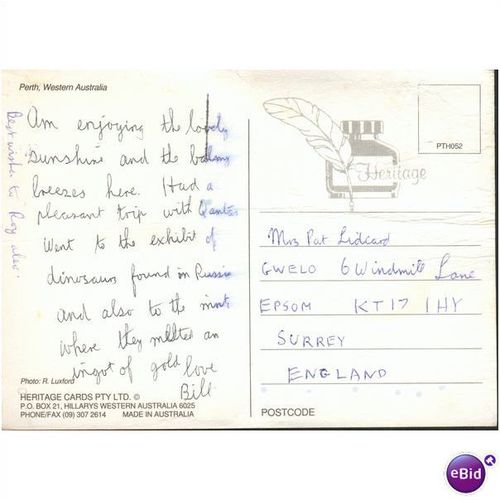 Perth, Western Australia
Am enjoying the lovely
Sunshine and the balmy
breezes here. Had a
pleasant trip with Qantas
Went to the exhibit of
dinosaurs found in Russia
and also to the mint
where they melted an
ingot of gold love
Bill
Best wishes to Roy also.
Photo: R. Luxford
HERITAGE CARDS PTY LTD. ©
P.O. BOX 21, HILLARYS WESTERN AUSTRALIA 6025
PHONE/FAX (09) 307 2614 MADE IN AUSTRALIA
PTH052
Heritage
Mrs Pat Lidcard
GWELO 6 Windmill Lane
EPSOM KT17 1HY
SURREY
ENGLAND
POSTCODE
eBid